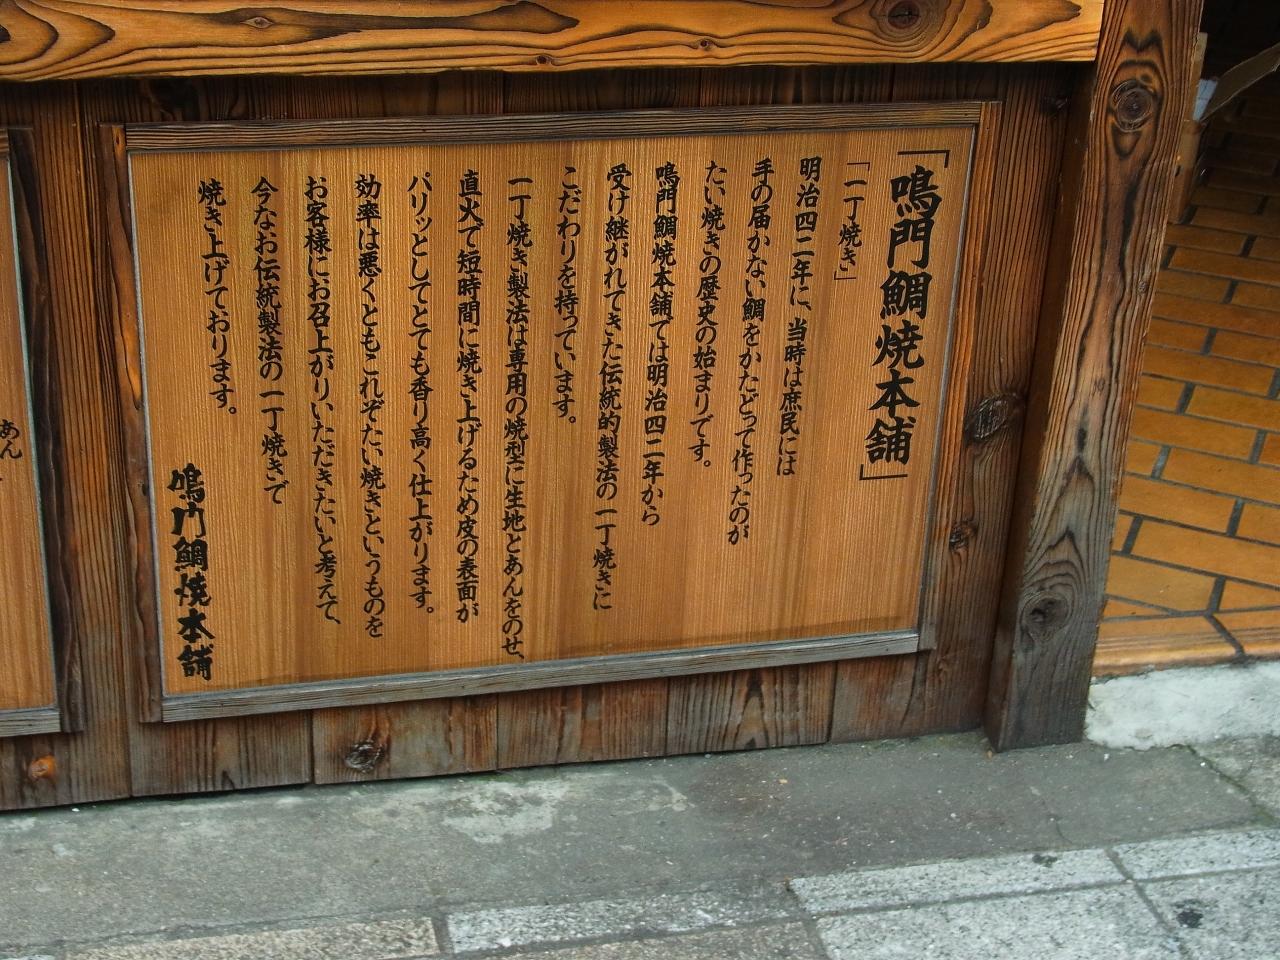 「鳴門鯛焼本舗」
「一丁焼き」
明治四二年に、当時は庶民には
手の届かない鯛をかたどって作ったのが
たい焼きの歴史の始まりです。
鳴門鯛焼本舗では明治四二年から
受け継がれてきた伝統的製法の一丁焼きに
こだわりを持っています。
一丁焼き製法は専用の焼型に生地とあんをのせ、
直火で短時間に焼き上げるため皮の表面が
パリッとしてとても香り高く仕上がります。
効率は悪くともこれぞたい焼きというものを
お客様にお召上がりいただきたいと考えて、
今なお伝統製法の一丁焼きで
焼き上げております。
鳴門鯛焼本舗
あん